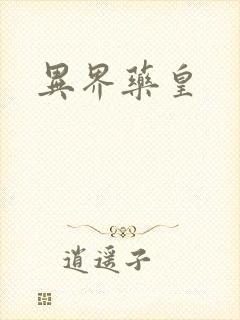 異界藥皇
逍遥子